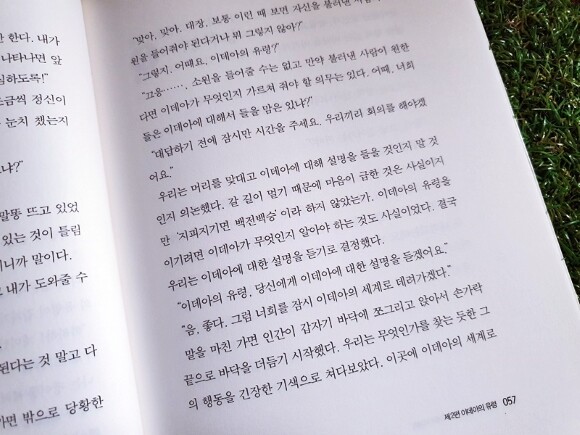 한다. 내가
나타나면 앞
심하도록!"
조금씩 정신이
눈치 챘는지
냐?"
말똥 뜨고 있었
있는 것이 틀림
니까 말이다.
내가 도와줄 수
된다는 것 말고 다
가면 밖으로 당황한
"맞아, 맞아. 대장, 보통 이런 때 보면 자신을 불러낸
원을 들어줘야 된다거나 뭐 그렇지 않아?"
"그렇지. 어때요, 이데아의 유령?"
"끄응……, 소원을 들어줄 수는 없고 만약 불러낸 사람이 원한
다면 이데아가 무엇인지 가르쳐 줘야 할 의무는 있다. 어때, 너희
들은 이데아에 대해서 들을 맘은 있냐?"
"대답하기 전에 잠시만 시간을 주세요. 우리끼리 회의를 해야겠
어요."
우리는 머리를 맞대고 이데아에 대해 설명을 들을 것인지 말 것
인지 의논했다. 갈 길이 멀기 때문에 마음이 급한 것은 사실이지
만 '지피지기면 백전백승'이라 하지 않았는가. 이데아의 유령을
이기려면 이데아가 무엇인지 알아야 하는 것도 사실이었다. 결국
우리는 이데아에 대한 설명을 듣기로 결정했다.
"이데아의 유령, 당신에게 이데아에 대한 설명을 듣겠어요."
"음, 좋다. 그럼 너희를 잠시 이데아의 세계로 데려가겠다."
말을 마친 가면 인간이 갑자기 바닥에 쪼그리고 앉아서 손가락
끝으로 바닥을 더듬기 시작했다. 우리는 무엇인가를 찾는 듯한 그
의 행동을 긴장한 기색으로 쳐다보았다. 이곳에 이데아의 세계로
제2편 이데아의 유령 057